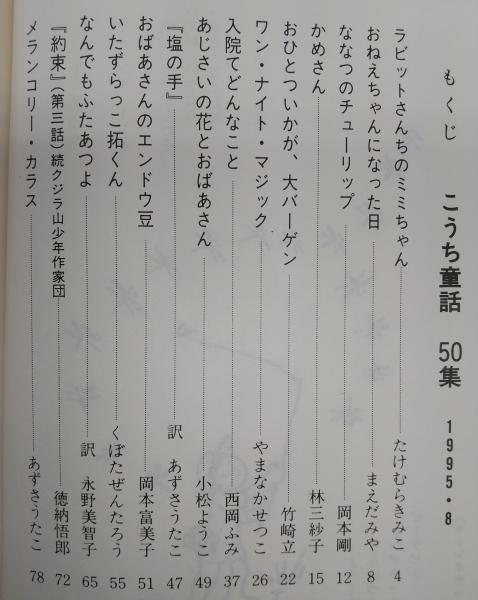 もくじ　こうち童話　50集　1995・8
ラビットさんちのミミちゃん……たけむらきみこ　4
おねえちゃんになった日……まえだみや　8
ななつのチューリップ……岡本剛　12
かめさん……林三紗子　15
おひとついかが、大バーゲン……竹崎立　22
ワン・ナイト・マジック……やまなかせつこ　26
入院てどんなこと……西岡ふみ　37
あじさいの花とおばあさん……小松ようこ　49
『塩の手』……訳　あずさうたこ　47
おばあさんのエンドウ豆……岡本富美子　51
いたずらっこ拓くん……くぼたぜんたろう　55
なんでもふたあつよ……訳　永野美智子　65
『約束』（第三話）続クジラ山少年作家団……徳納悟郎　72
メランコリー・カラス……あずさうたこ　78